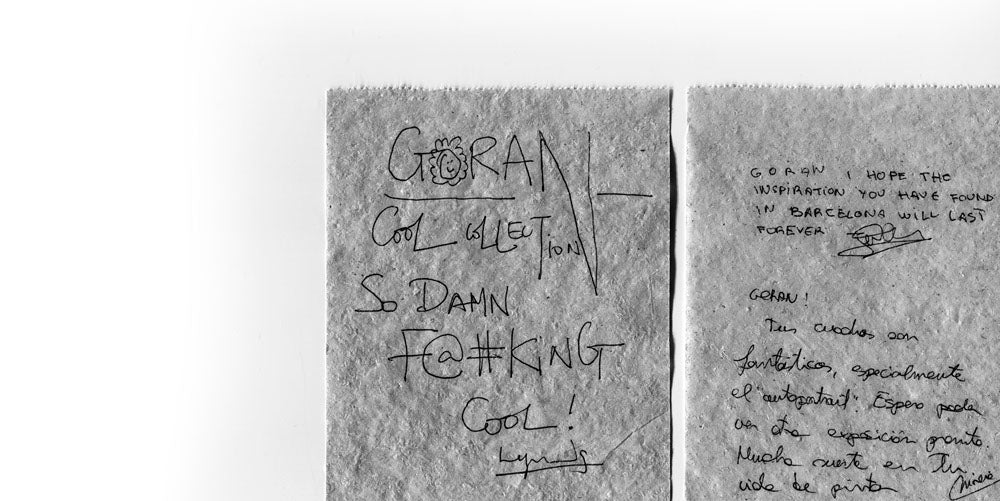 GORAN
COOL COLLECTION
SO DAMN
F@#KING
COOL!
GORAN I HOPE THE
INSPIRATION YOU HAVE FOUND
IN BARCELONA WILL LAST
FOREVER
GORAN!
Tus cuadros son
fantásticos, especialmente
el "autoportrait". Espero poder
ver otra exposición pronto.
Mucha suerte en Tu
vida de pintor